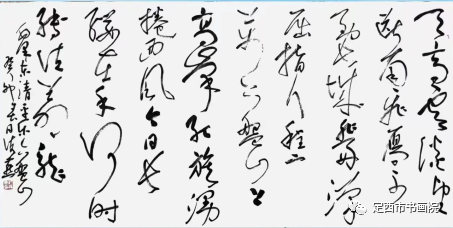 天高云淡望
断南飞雁不
到长城非好汉
屈指行程二
万六盘山上
高峰红旗漫
捲西风今日长
缨在手何时
缚住苍龙
毛泽东清平乐六盘山
癸卯
定西市书画院